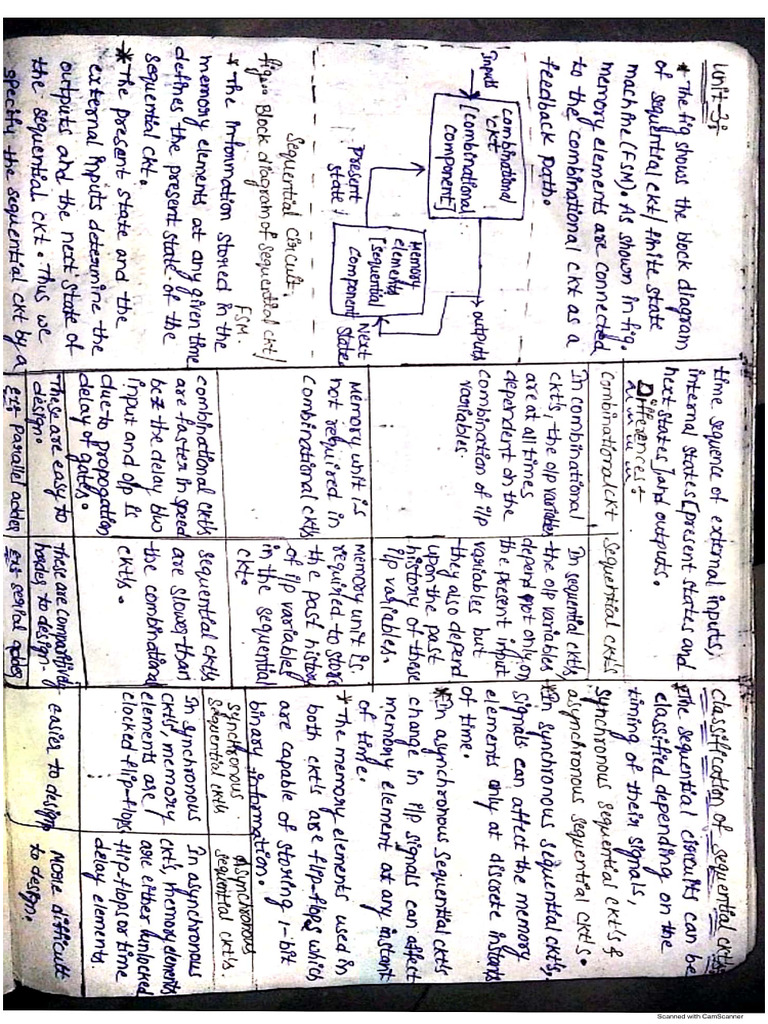 Unit-3:
* The fig shows the block diagram
of sequential ckt/finite state
machine (FSM). As shown in fig.
memory elements are connected
to the combinational ckt as a
feedback path.
Inputs
combinational
ckt
[combinational
component]
outputs
Memory
elements
[sequential
component
present
state
Next
State
Sequential circuit,
fig:- Block diagram of sequential ckt/
FSM.
* The information stored in the
memory elements at any given time
defines the present state of the
sequential ckt.
* The present state and the
external inputs determine the
outputs and the next state of
the sequential ckt. Thus we
specify the sequential ckt by a
time sequence of external inputs,
internal states[present states and
next states] and outputs.
Differences:-
combinational ckt
Sequential ckt's
In combinational
ckt's, the o/p variables
are at all times
dependent on the
combination of i/p
variables.
In sequential ckt's,
the o/p variables
depend not only on
the present input
variables but
they also depend
upon the past
history of these
i/p variables.
Memory unit is
not required in
combinational ckts
Memory unit is
required to store
the past history
of i/p variables
in the sequential
ckt.
combinational ckts
are faster in speed
bcz the delay b/w
input and o/p is
due to propogation
delay of gates.
sequential ckts
are slower than
the combinational
ckts.
These are easy to
design.
these are
harder to design.
Ex:- parallel adder
Ex:- serial adder
classification of sequential ckt's:
* The sequential circuits can be
classified depending on the
timing of their signals,
synchronous sequential ckt's &
asynchronous sequential ckt's.
* In synchronous sequential ckt's,
signals can affect the memory
elements only at discrete instants
of time.
* In asynchronous sequential ckt's
change in i/p signals can affect
memory element at any instant
of time.
* The memory elements used in
both ckt's are flip-flops which
are capable of storing 1-bit
binary information.
synchronous
sequential ckts
Asynchronous
sequential ckt's
In synchronous
ckts, memory
elements are
clocked flip-flops
In asynchronous
ckt's, memory elements
are either unlocked
flip-flops or time
delay elements.
easier to design
More difficult
to design.
Scanned with CamScanner